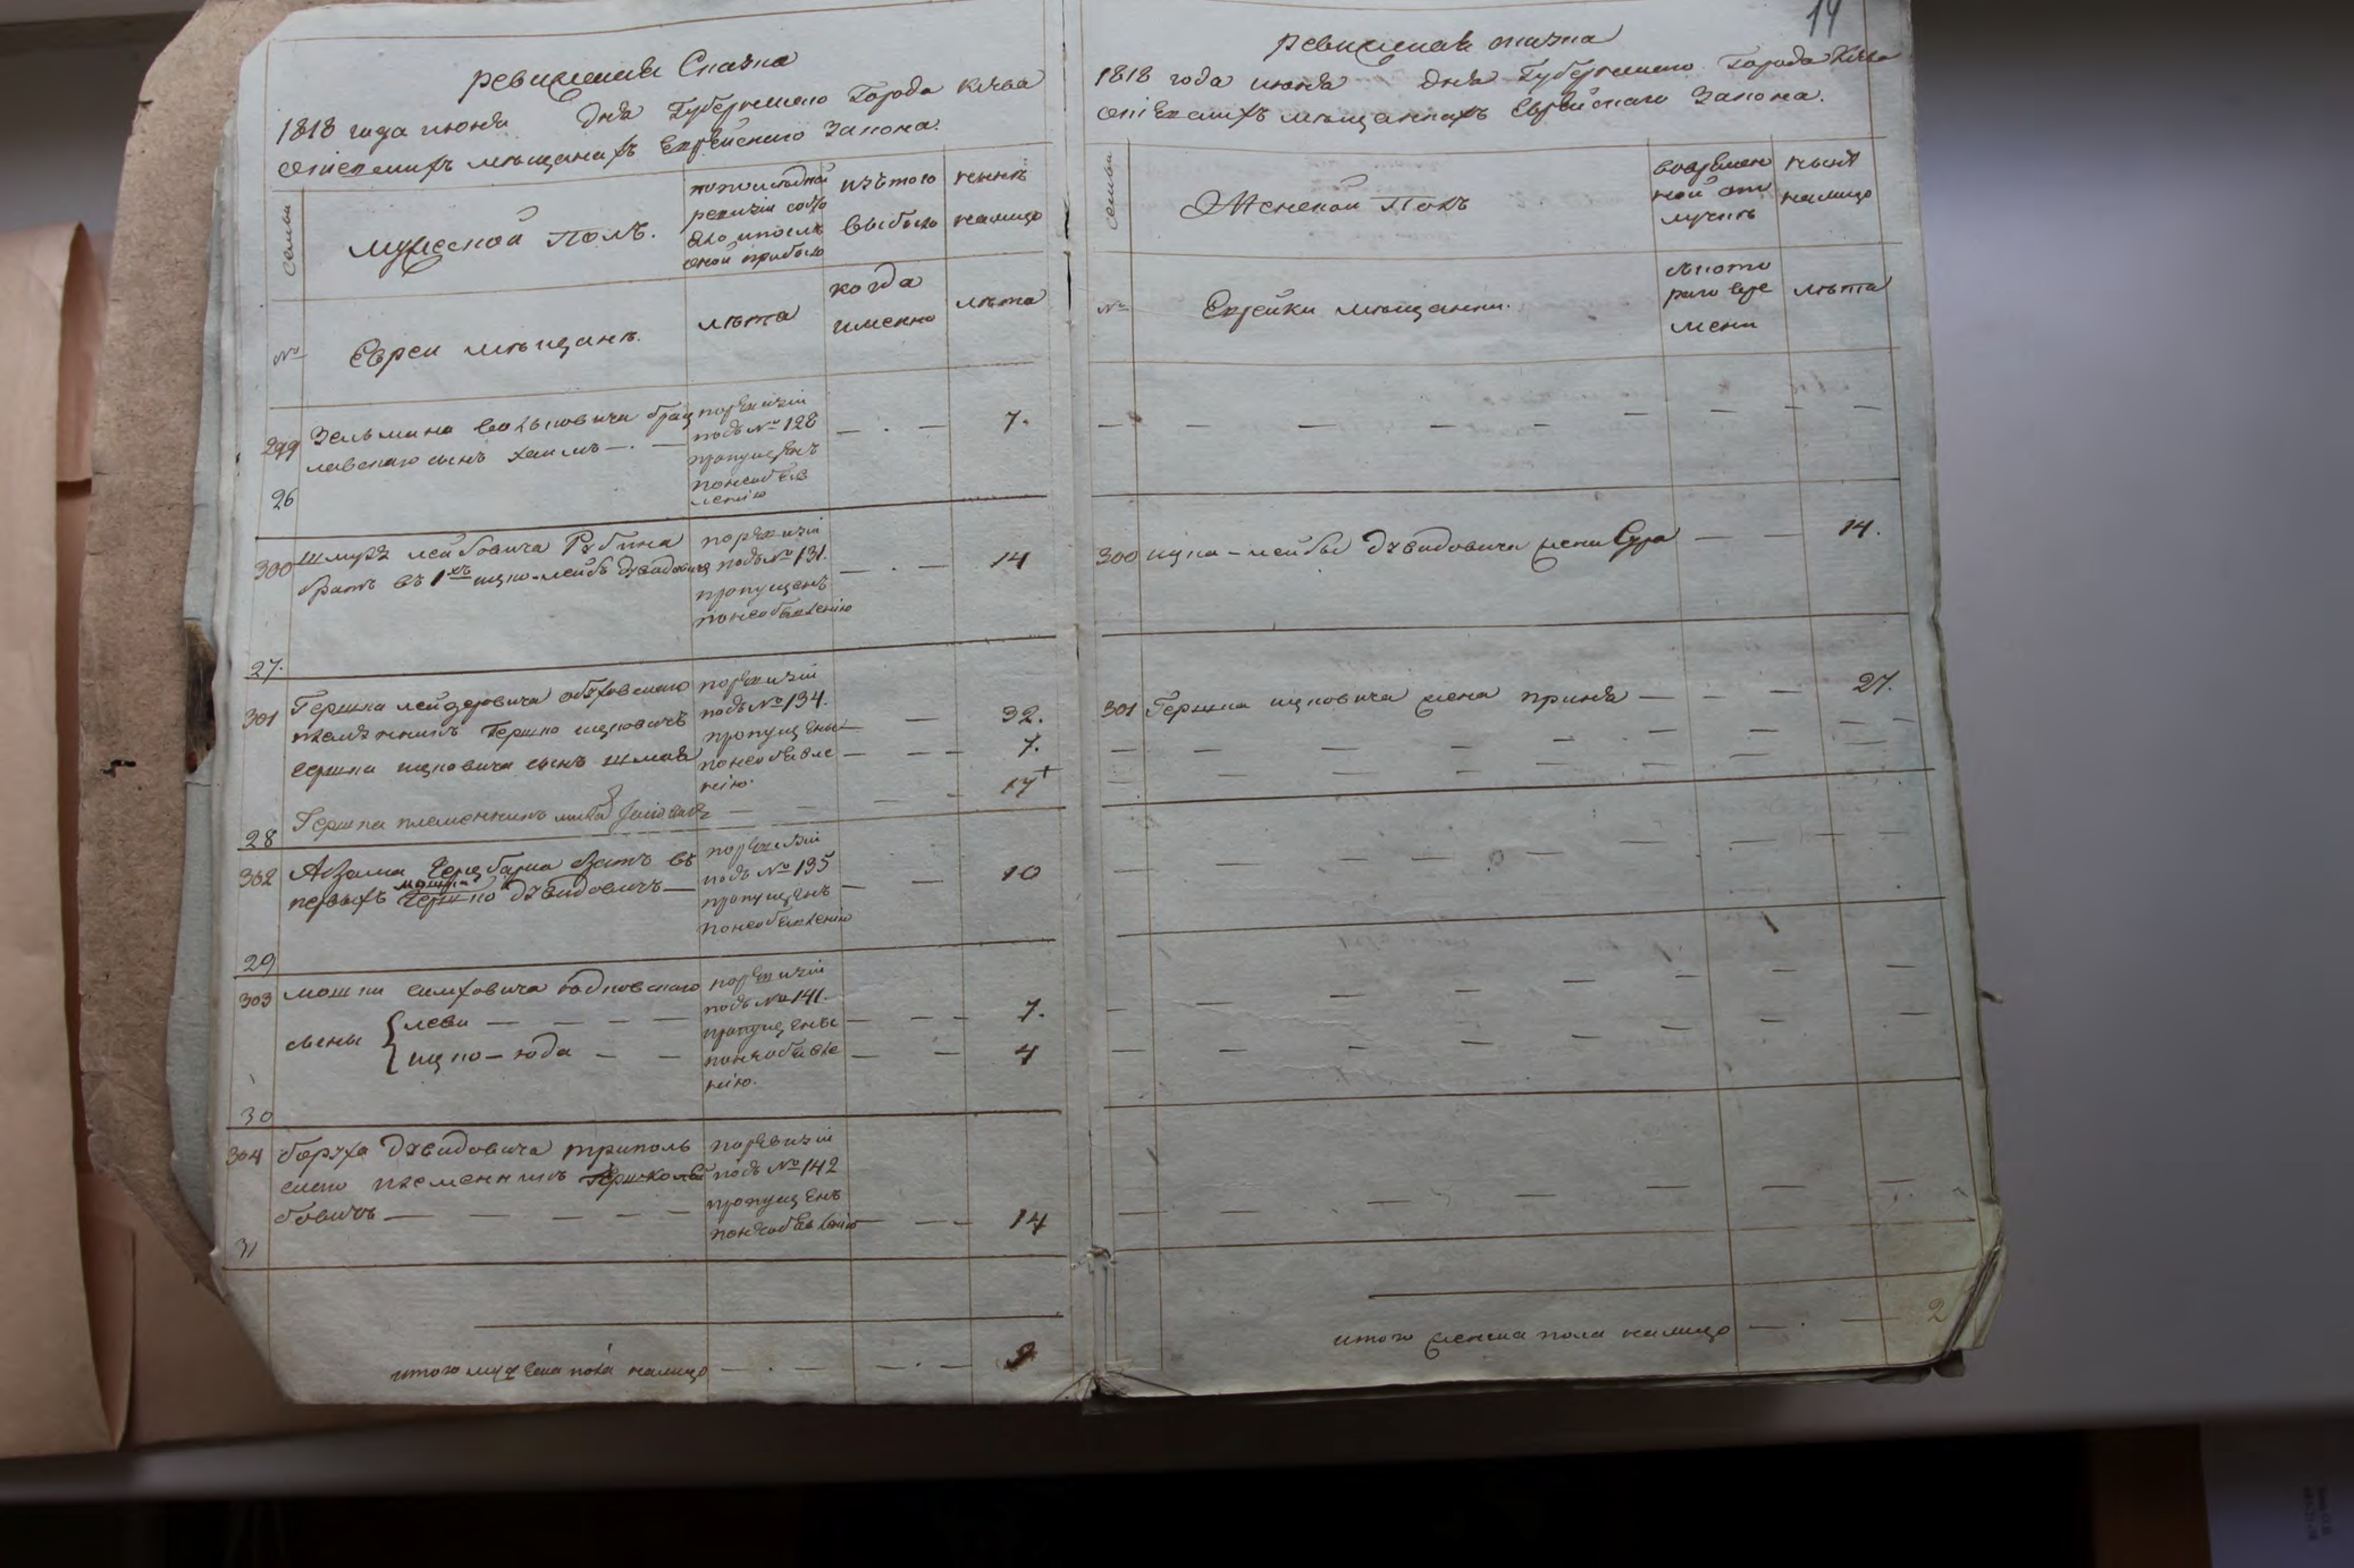 ревизская Сказка
1818 года июня дня Губернскаго Города Кіева
о мѣщанахъ Еврейскаго Закона.
семьи
мужеской Полъ.
по последней
ревизіи состо
яло и после
оной прибыло
изътого
выбыло
нынѣ
налицо
№
Евреи мѣщанъ.
лѣта
когда
имянно
лѣта
299 Зельмана Вольковича
сынъ хаимъ — . —
поревизіи
подъ № 128
пропущенъ
понеобъяв
ленію
— . — 7.
26
300 Шмуля лейбовича Рубина
братъ въ 1хъ ицко-лейбъ Дувидовичъ
поревизіи
подъ № 131.
пропущенъ
понеобъявленію
— . — 14
27.
301 Гершка лейзеровича обуховскаго
племянникъ Гершко ицковичъ
Гершка ицковича сынъ шмая
Гершка племенникъ
поревизіи
подъ № 134.
пропущены
понеобъявле
нію.
32.
7.
17
28
302 Абрама зять въ
первыхъ мошко Дувидовичъ —
поревизіи
подъ № 135
пропущенъ
понеобъявленію
— — 10
29
303 мошки симховича
сыны { леви — — — —
ицко-юда — —
поревизіи
подъ № 141.
пропущены
понеобъявле
нію.
7.
4
30
304 боруха Дувидовича триполь
скаго племенникъ Гершко лей
бовичъ — — — — —
поревизіи
подъ № 142
пропущенъ
понеобъявленію
— — 14
31
итого мужеска пола налицо — . — — . — 9
14
ревизская сказка
1818 года июня дня Губернскаго Города Кіева
о мѣщанкахъ Еврейскаго Закона.
семьи
Женской Полъ
вовремен
ной от
лучкѣ
нынѣ
налицо
№
Еврейки мѣщанки.
съкото
раго вре
мени
лѣта
300 ицка-лейбы Дувидовича жена Сура — — 14.
301 Гершка ицковича жена — — — 27.
итого женска пола налицо — . — 2